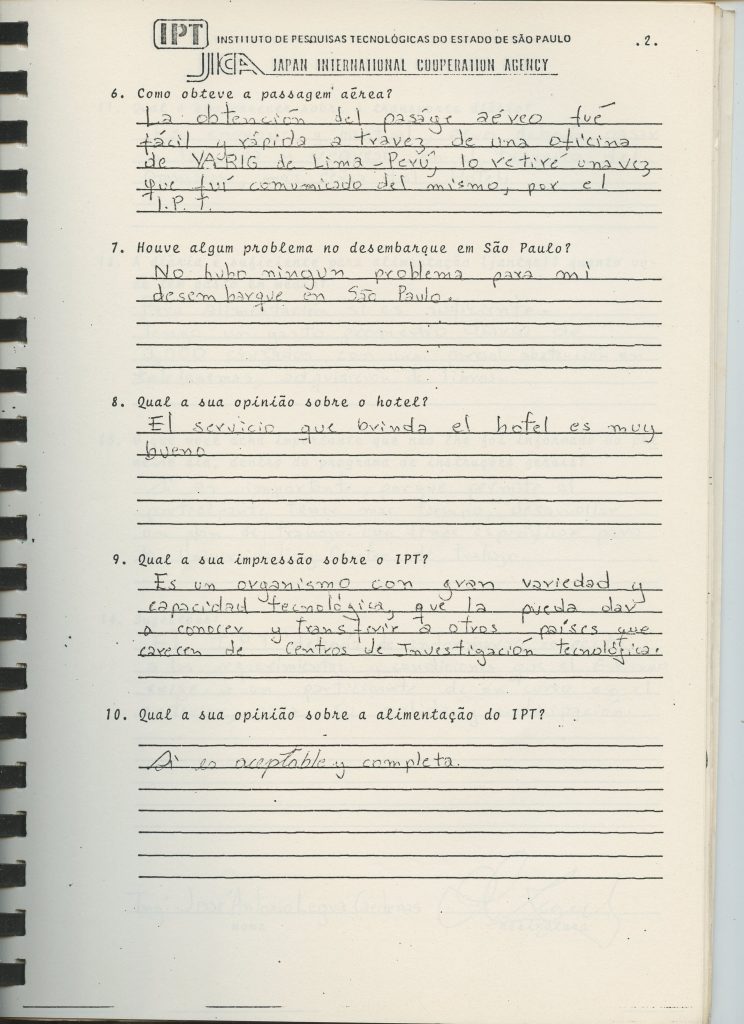 IPT INSTITUTO DE PESQUISAS TECNOLÓGICAS DO ESTADO DE SÃO PAULO .2.
JICA JAPAN INTERNATIONAL COOPERATION AGENCY
6. Como obteve a passagem aérea?
La obtención del paságe aéreo fué
fácil y rápida a travez de una oficina
de VARIG de Lima-Perú, lo retiré una vez
que fuí comunicado del mismo, por el
I.P.T.
7. Houve algum problema no desembarque em São Paulo?
No hubo ningun problema para mi
desembarque en São Paulo.
8. Qual a sua opinião sobre o hotel?
El servicio que brinda el hotel es muy
bueno
9. Qual a sua impressão sobre o IPT?
Es un organismo con gran variedad y
capacidad tecnológica, que la pueda dar
a conocer y transferir a otros países que
carecen de Centros de Investigación tecnológica.
10. Qual a sua opinião sobre a alimentação do IPT?
Si es aceptable y completa.
Ing. José Antonio Legua Cárdenas